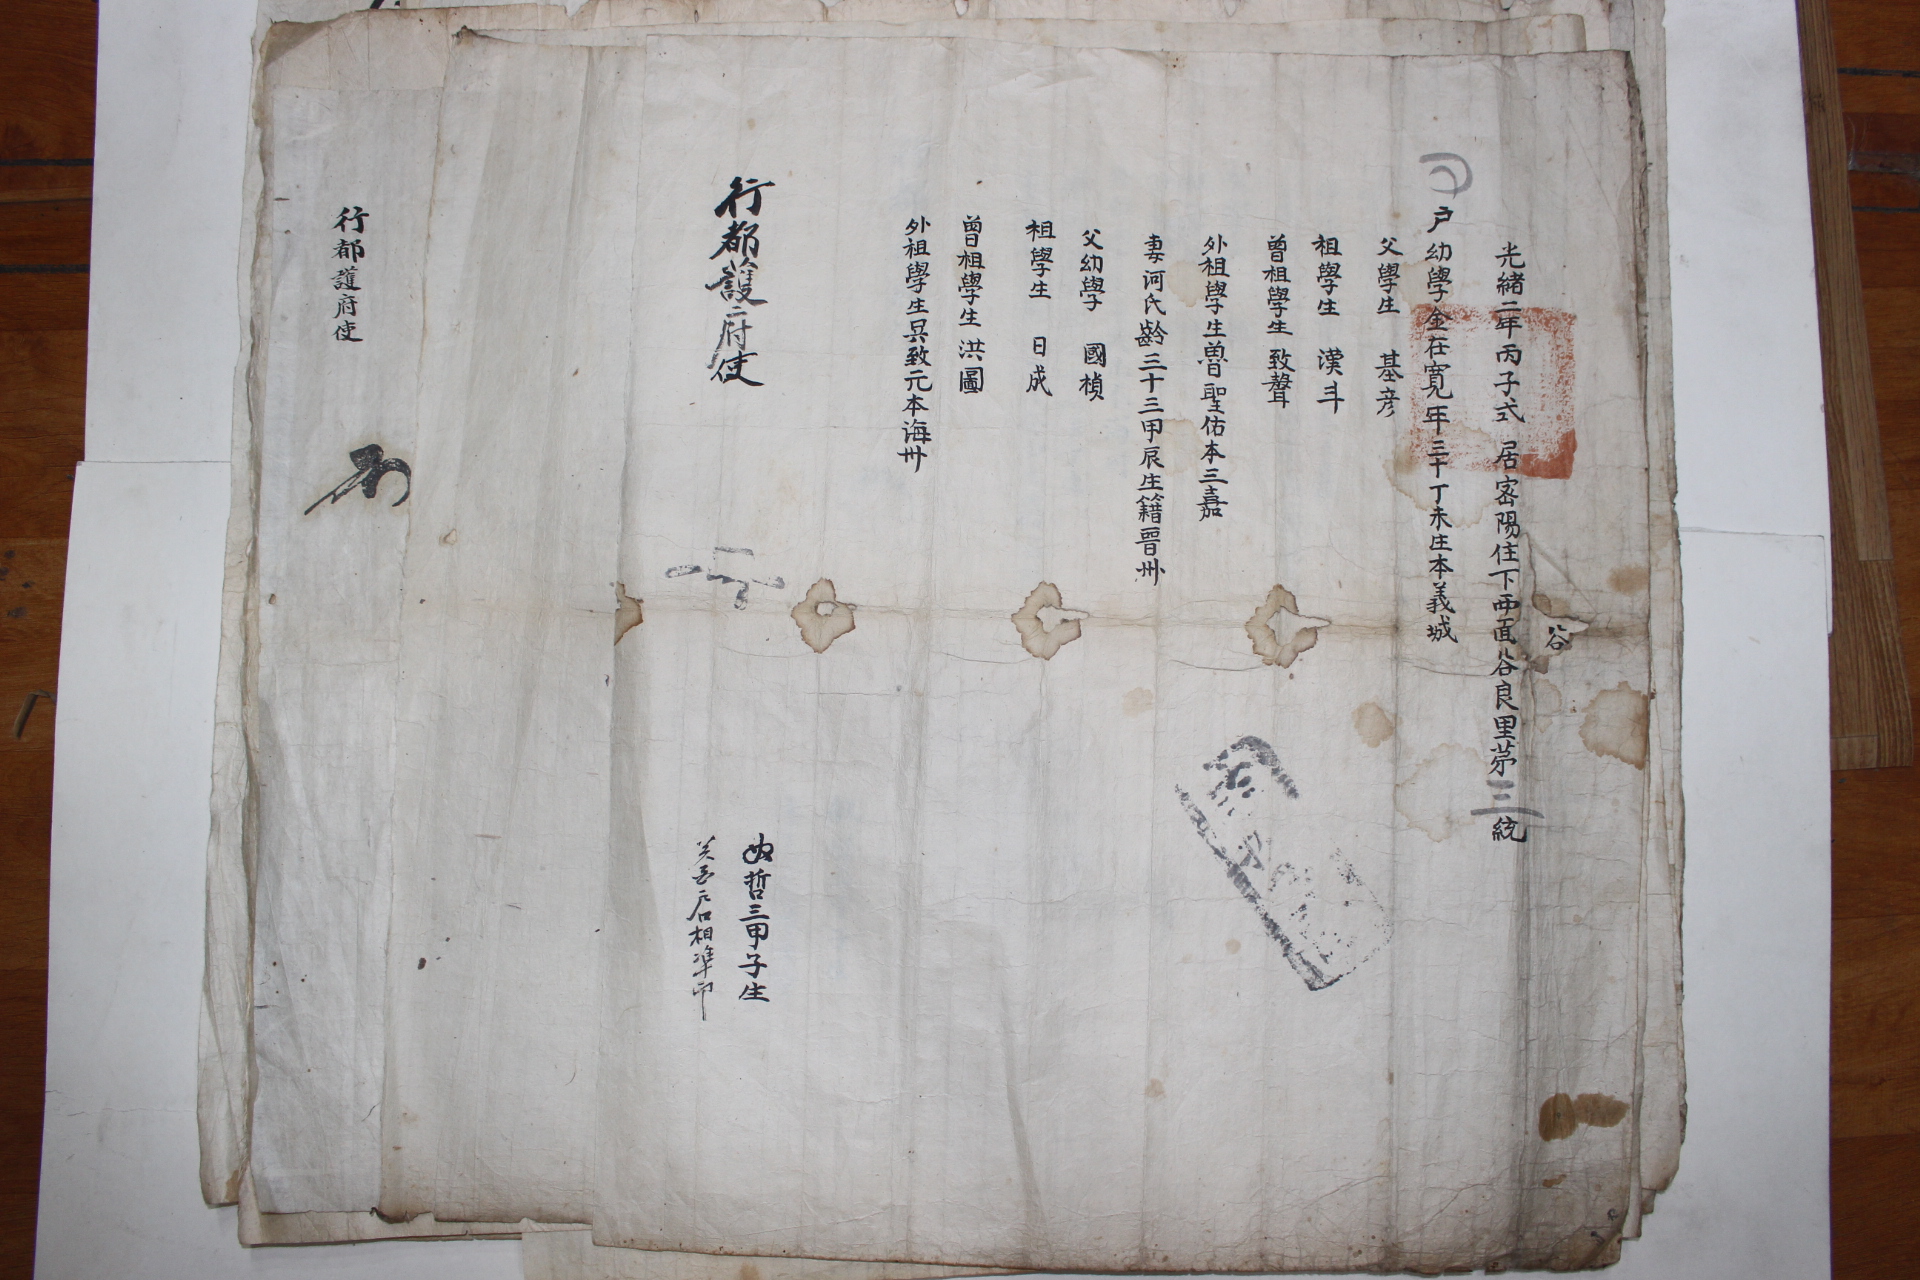 光緒二年丙子式 居密陽住下西面谷良里第三統
谷
户 幼學金在寬年三十丁未生本義城
父學生 基彦
祖學生 漢斗
曾祖學生 致聲
外祖學生曽聖佑本三嘉
妻河氏齡三十三甲辰生籍晋州
父幼學 國楨
祖學生 日成
曾祖學生 洪圖
外祖學生吳致元本海州
行都護府使
奴哲三甲子生
相準印
行都護府使